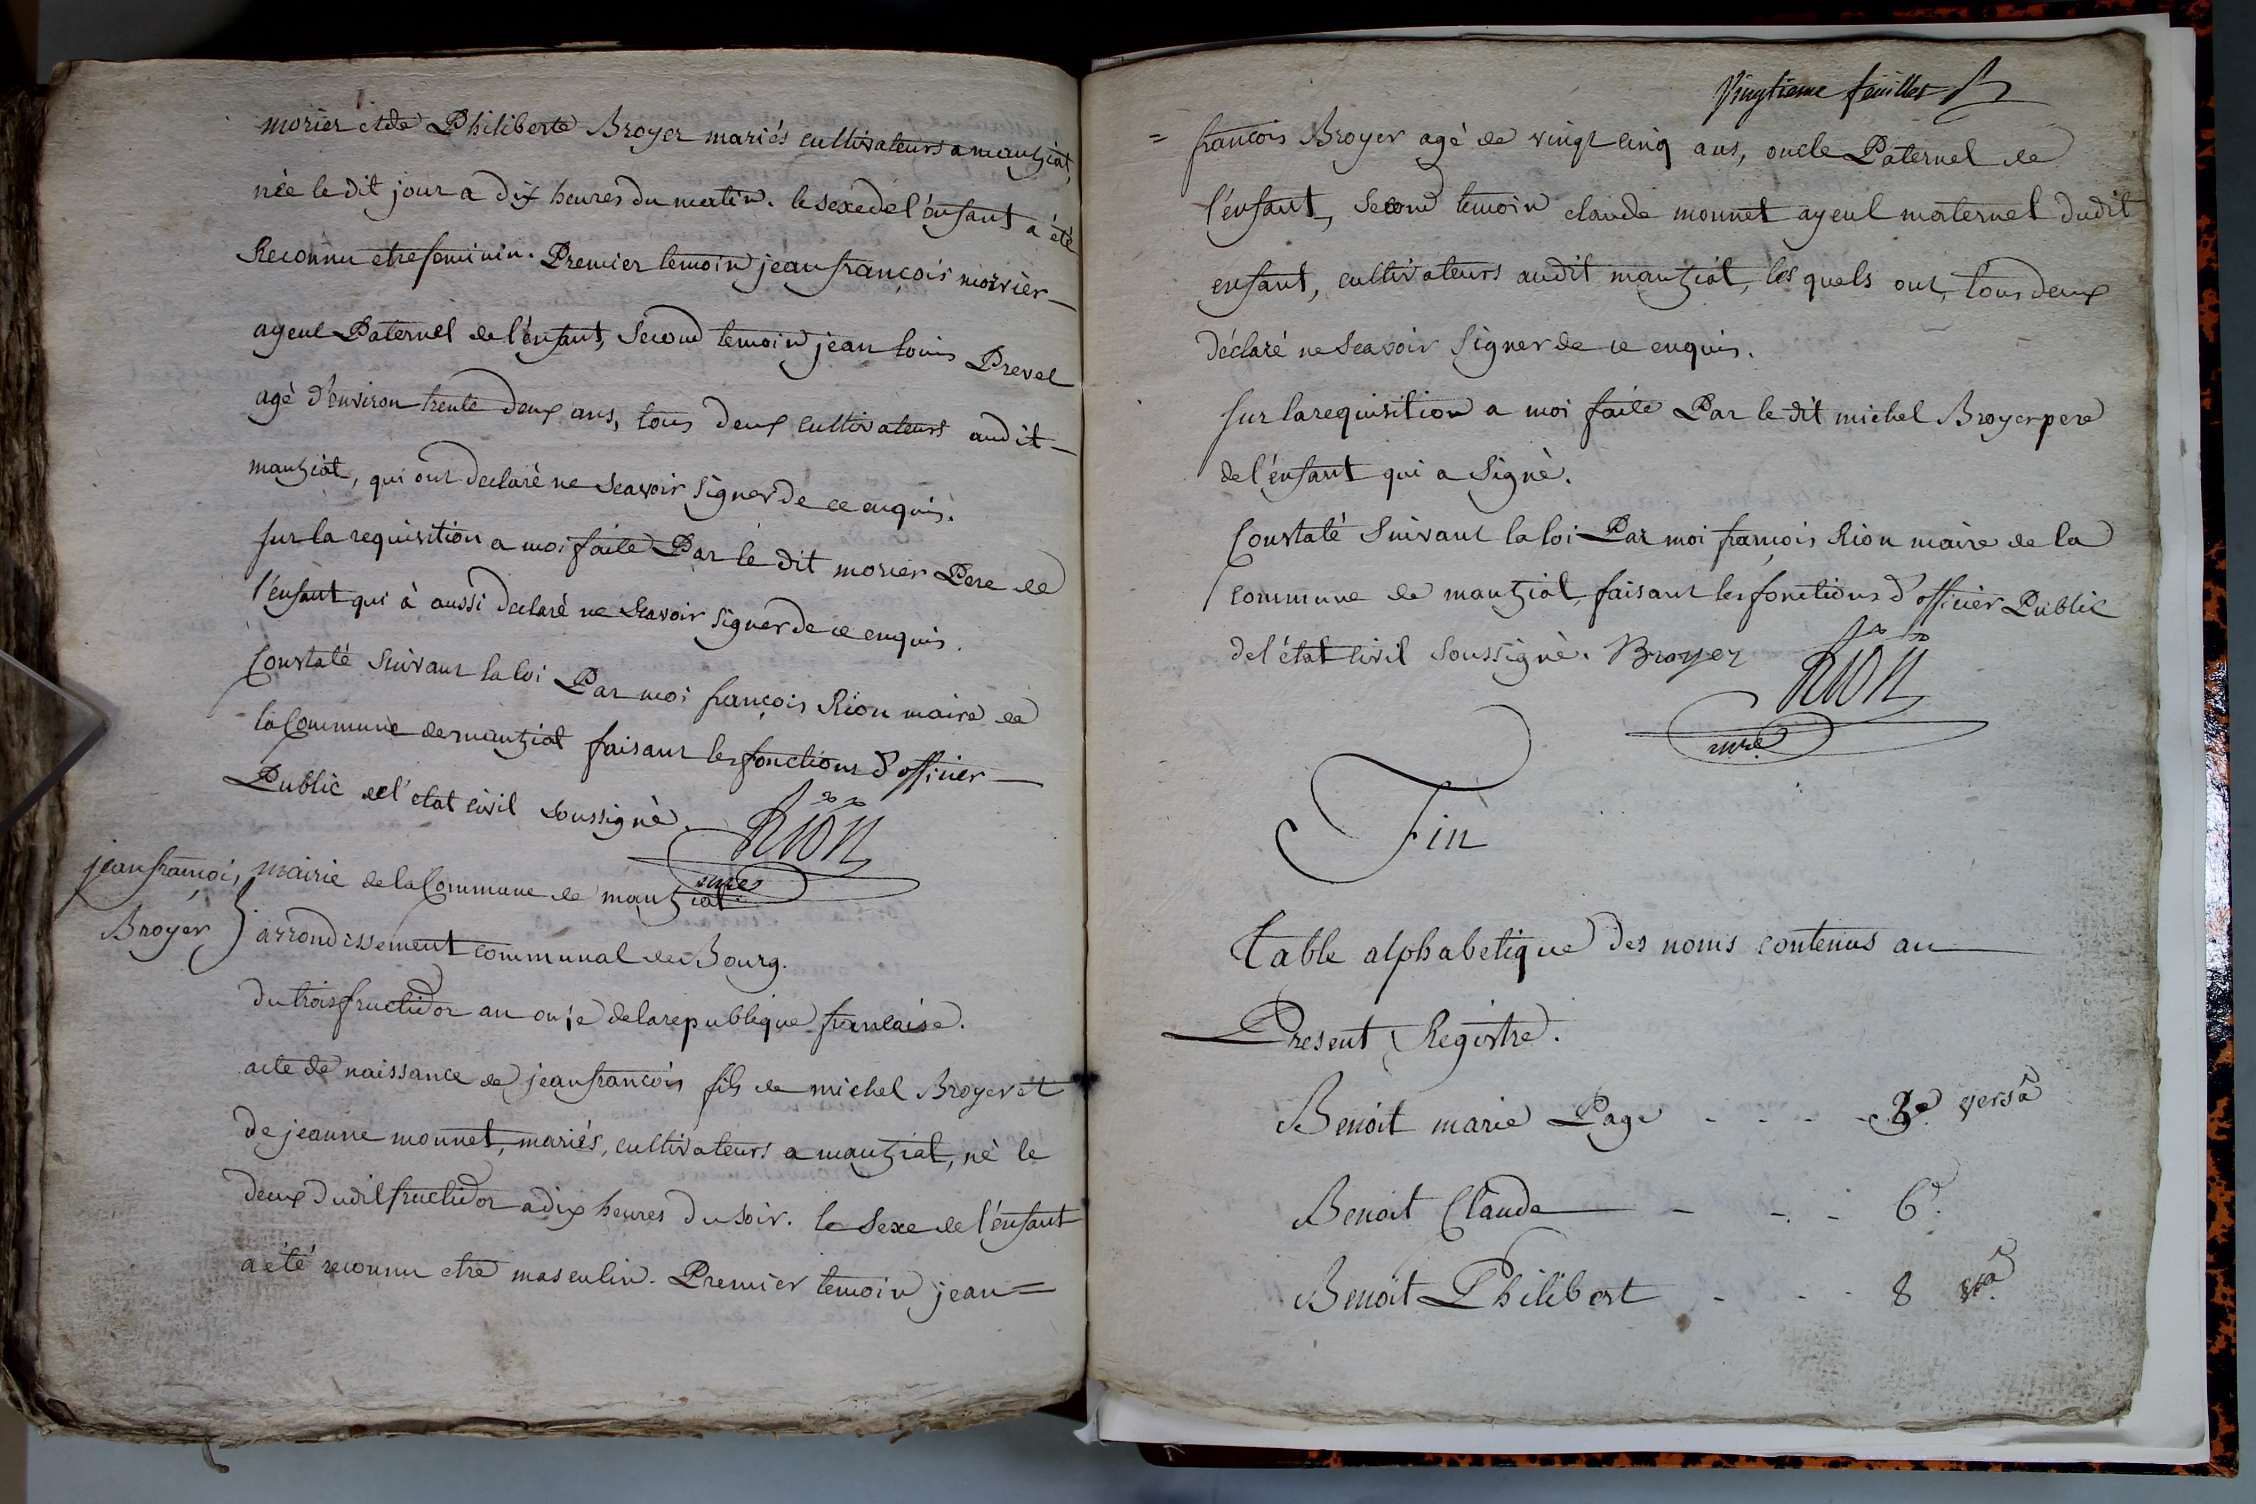 morier et de Philiberte Broyer mariés cultivateurs a mantziat,
née le dit jour a dix heures du matin. le sexe de l'énfant a été
Reconnu etre feminin. Premier temoin jean françois morier
ayeul Paternel de l'énfant, Second temoin jean louis Prevel
agé d'environ trente deux ans, tous deux cultivateurs audit
mantziat, qui ont declaré ne scavoir signer de ce enquis.
sur la requisition a moi faite Par le dit morier Pere de
l'énfant qui à aussi declaré ne scavoir signer de ce enquis.
Constaté suivant la loi Par moi françois Rion maire de
la Commune de mantziat faisant les fonctions d'officier
Public de l'etat civil soussigné.
Rion
mre
jean françois
Broyer
mairie de la Commune de mantziat.
arrondissement communal de Bourg.
du trois fructidor an onze de la republique française.
acte de naissance de jean françois fils de michel Broyer et
de jeanne monnet, mariés, cultivateurs a mantziat, né le
deux dudit fructidor a dix heures du soir. le sexe de l'énfant
a été reconnu etre masculin. Premier temoin jean =
Vingtieme feuillet
= françois Broyer agé de vingt cinq ans, oncle Paternel de
l'énfant, second temoin claude monnet ayeul maternel dudit
enfant, cultivateurs audit mantziat, les quels ont, tous deux
déclaré ne scavoir signer de ce enquis.
sur la requisition a moi faite Par le dit michel Broyer pere
de l'énfant qui a signé.
Constaté suivant la loi Par moi françois Rion maire de la
commune de mantziat, faisant les fonctions d'officier Public
de l'état civil soussigné. Broyer
Rion
mre
Fin
Table alphabetique des noms contenus au
Present Registre.
Benoit marie Page - - - - verso
Benoit Claude - - - 6.
Benoit Philibert - - - 8 vo.